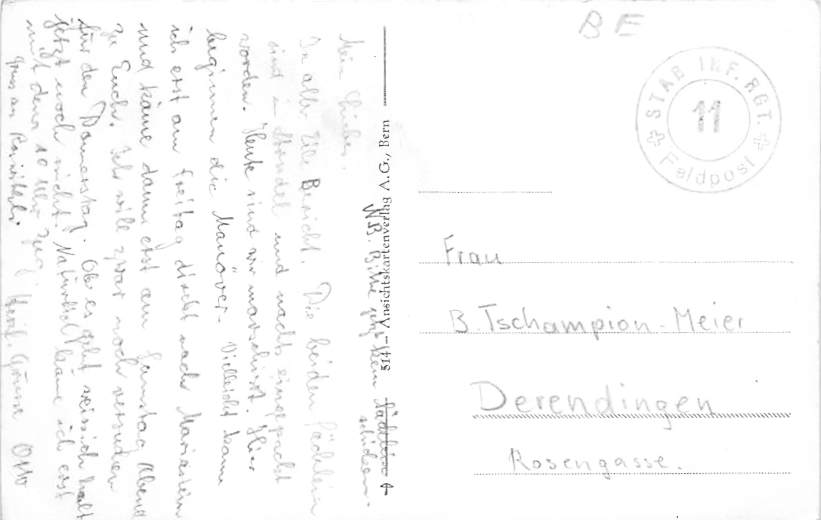 BE
STAB INF. RGT.
11
Feldpost
Frau
B. Tschampion-Meier
Derendingen
Rosengasse.
514 – Ansichtskartenverlag A.G., Bern
Mein Liebes.
In aller Eile Bericht. Die beiden
sind in und nachts eingepackt
worden. Heute sind wir marschiert. Hier
beginnen die Manöver. Vielleicht kann
ich erst am Freitag direkt nach Mariastein
und käme dann erst am Samstag Abend
zu Euch. Ich will zwar noch versuchen
für den Donnerstag. Ob es geht weiss ich halt
jetzt noch nicht. Natürlich käme ich erst
mit dem 10 Uhr Zug. Herzl. Grüsse Otto
Gruss an
NB. Bitte jetzt kein
schicken.